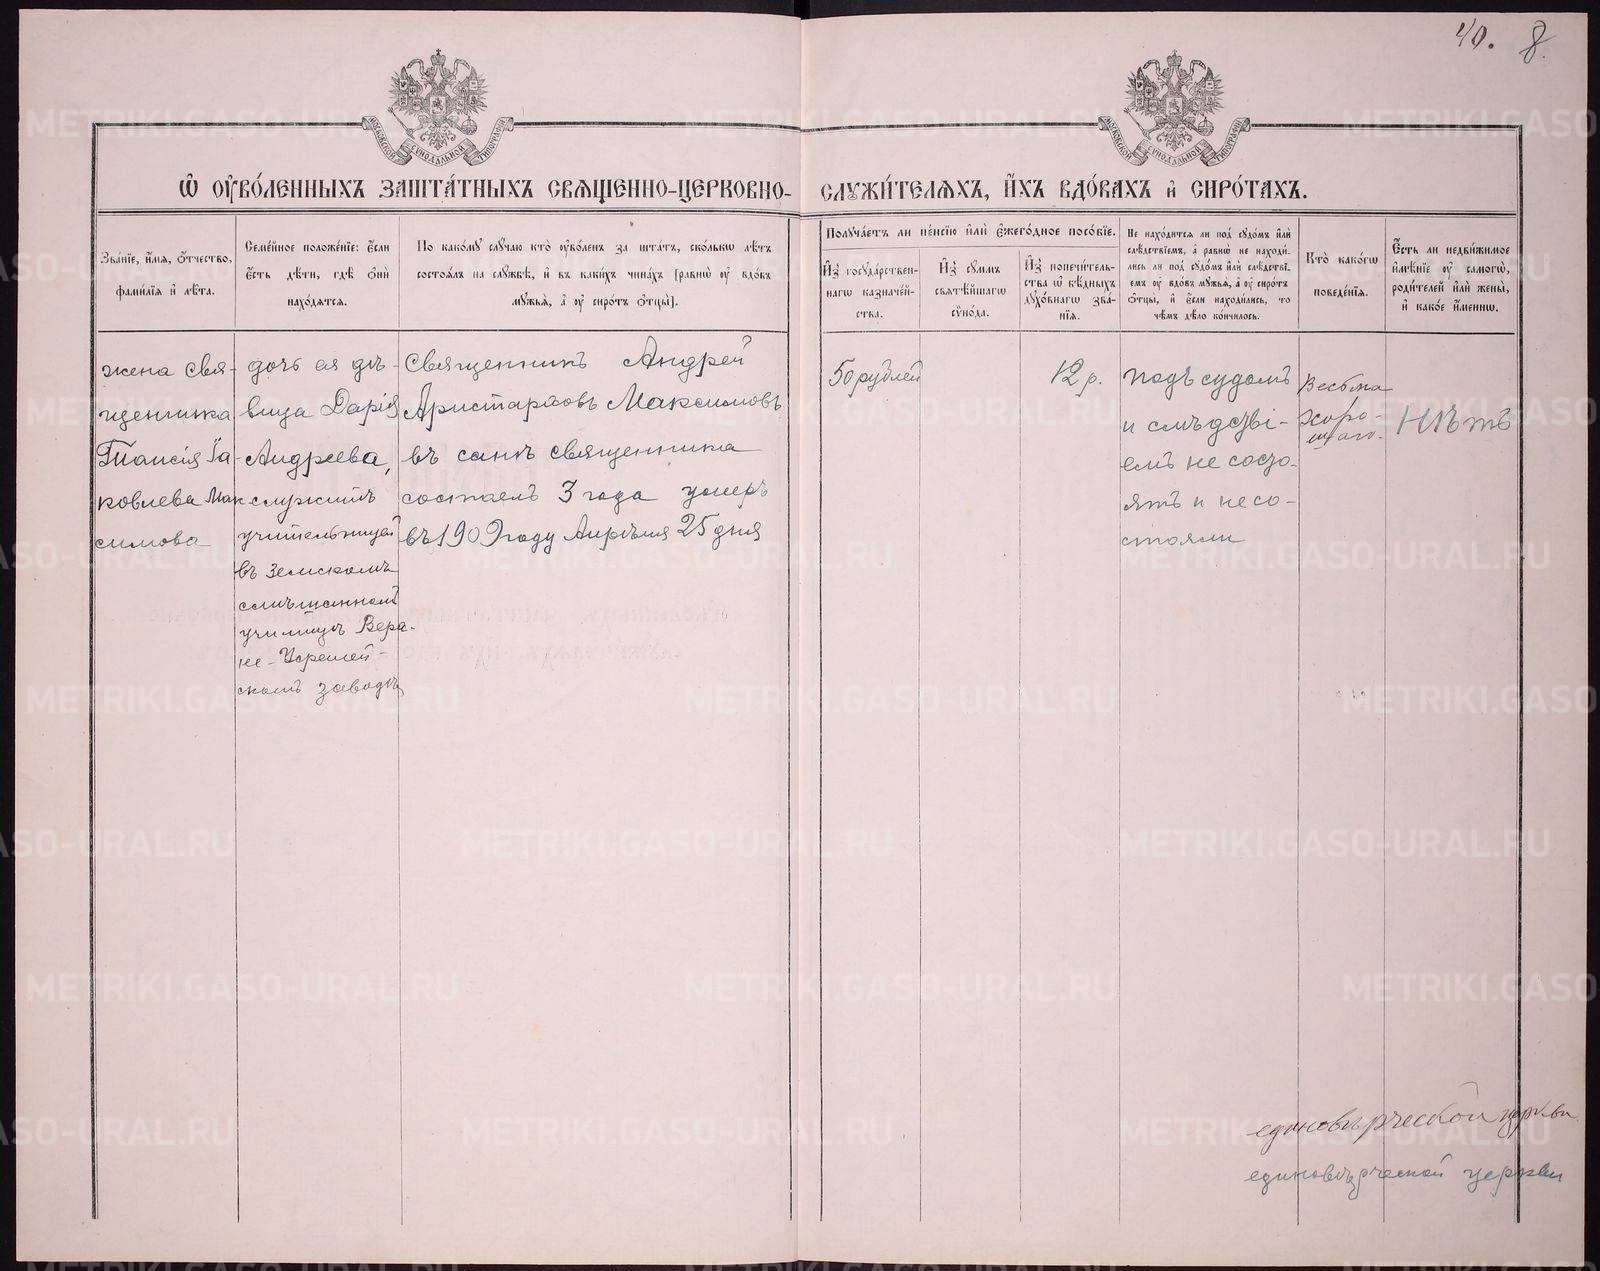 40. 8.
МОСКОВСКОЙ СѴНОДАЛЬНОЙ ТИПОГРАФІИ
МОСКОВСКОЙ СѴНОДАЛЬНОЙ ТИПОГРАФІИ
Ѡ ОУ҆ВО́ЛЕННЫХЪ ЗАШТА́ТНЫХЪ СВѦЩЕННО-ЦЕРКОВНО-СЛУЖИ́ТЕЛѦХЪ, И҆́ХЪ ВДО́ВАХЪ и҆ СИРО́ТАХЪ.
Зва́нїе, и҆́мѧ, ѻ҆́тчество,
фами́лїѧ и҆ лѣ́та.
Семе́йное положе́нїе: є҆́сли
є҆́сть дѣ́ти, гдѣ ѻ҆нѝ
нахо́дѧтсѧ.
По како́му слу́чаю кто̀ оу҆во́ленъ за шта́тъ, ско́лькѡ лѣ́тъ
состоѧ́лъ на слу́жбѣ, и҆ въ каки́хъ чина́хъ [равнѡ̀ оу҆ вдо́въ
му́жьѧ, а҆ оу҆ сиро́тъ ѻ҆тцы̀].
Получа́етъ ли пе́нсїю и҆лѝ є҆жего́дное посо́бїе.
И҆з̾ госуда́рствен-
нагѡ казначе́й-
ства.
И҆з̾ сꙋ́ммъ
свѧтѣ́йшагѡ
сѷно́да.
И҆з̾ попечи́тель-
ства ѡ бѣ́дныхъ
дꙋхо́внагѡ зва́-
нїѧ.
Не нахо́дитсѧ ли под̾ судо́мъ и҆лѝ
слѣ́дствїемъ, а҆ равнѡ̀ не находи́-
лись ли под̾ судо́мъ и҆лѝ слѣ́дствї-
емъ оу҆ вдо́въ мужьѧ̀, а҆ оу҆ сиро́тъ
ѻ҆тцы̀, и҆ є҆́сли находи́лись, то
чѣ́мъ дѣ́ло ко́нчилось.
Кто̀ како́гѡ
поведе́нїѧ.
Є҆́сть ли недви́жимое
и҆мѣ́нїе оу҆ самогѡ̀,
роди́телей и҆лѝ жены̀,
и҆ како́е и҆́меннѡ.
жена свя-
щенника
Таисія Іа-
ковлева Мак
симова
дочь ея дѣ-
вица Дарія
Андреева,
служитъ
учительницей
въ Земскомъ
смѣшанномъ
училищѣ Верх-
не-
скомъ заводѣ
Священникъ Андрей
Аристарховъ Максимовъ
въ санѣ священника
состоялъ 3 года умеръ
въ 1909 году Апрѣля 25 дня
50 рублей
12 р.
Подъ судомъ
и слѣдстві-
емъ не состо-
ятъ и не со-
стояли
Весьма
хоро-
шаго.
Нѣтъ
единовѣрческой церкви
единовѣрческой церкви
METRIKI.GASO-URAL.RU